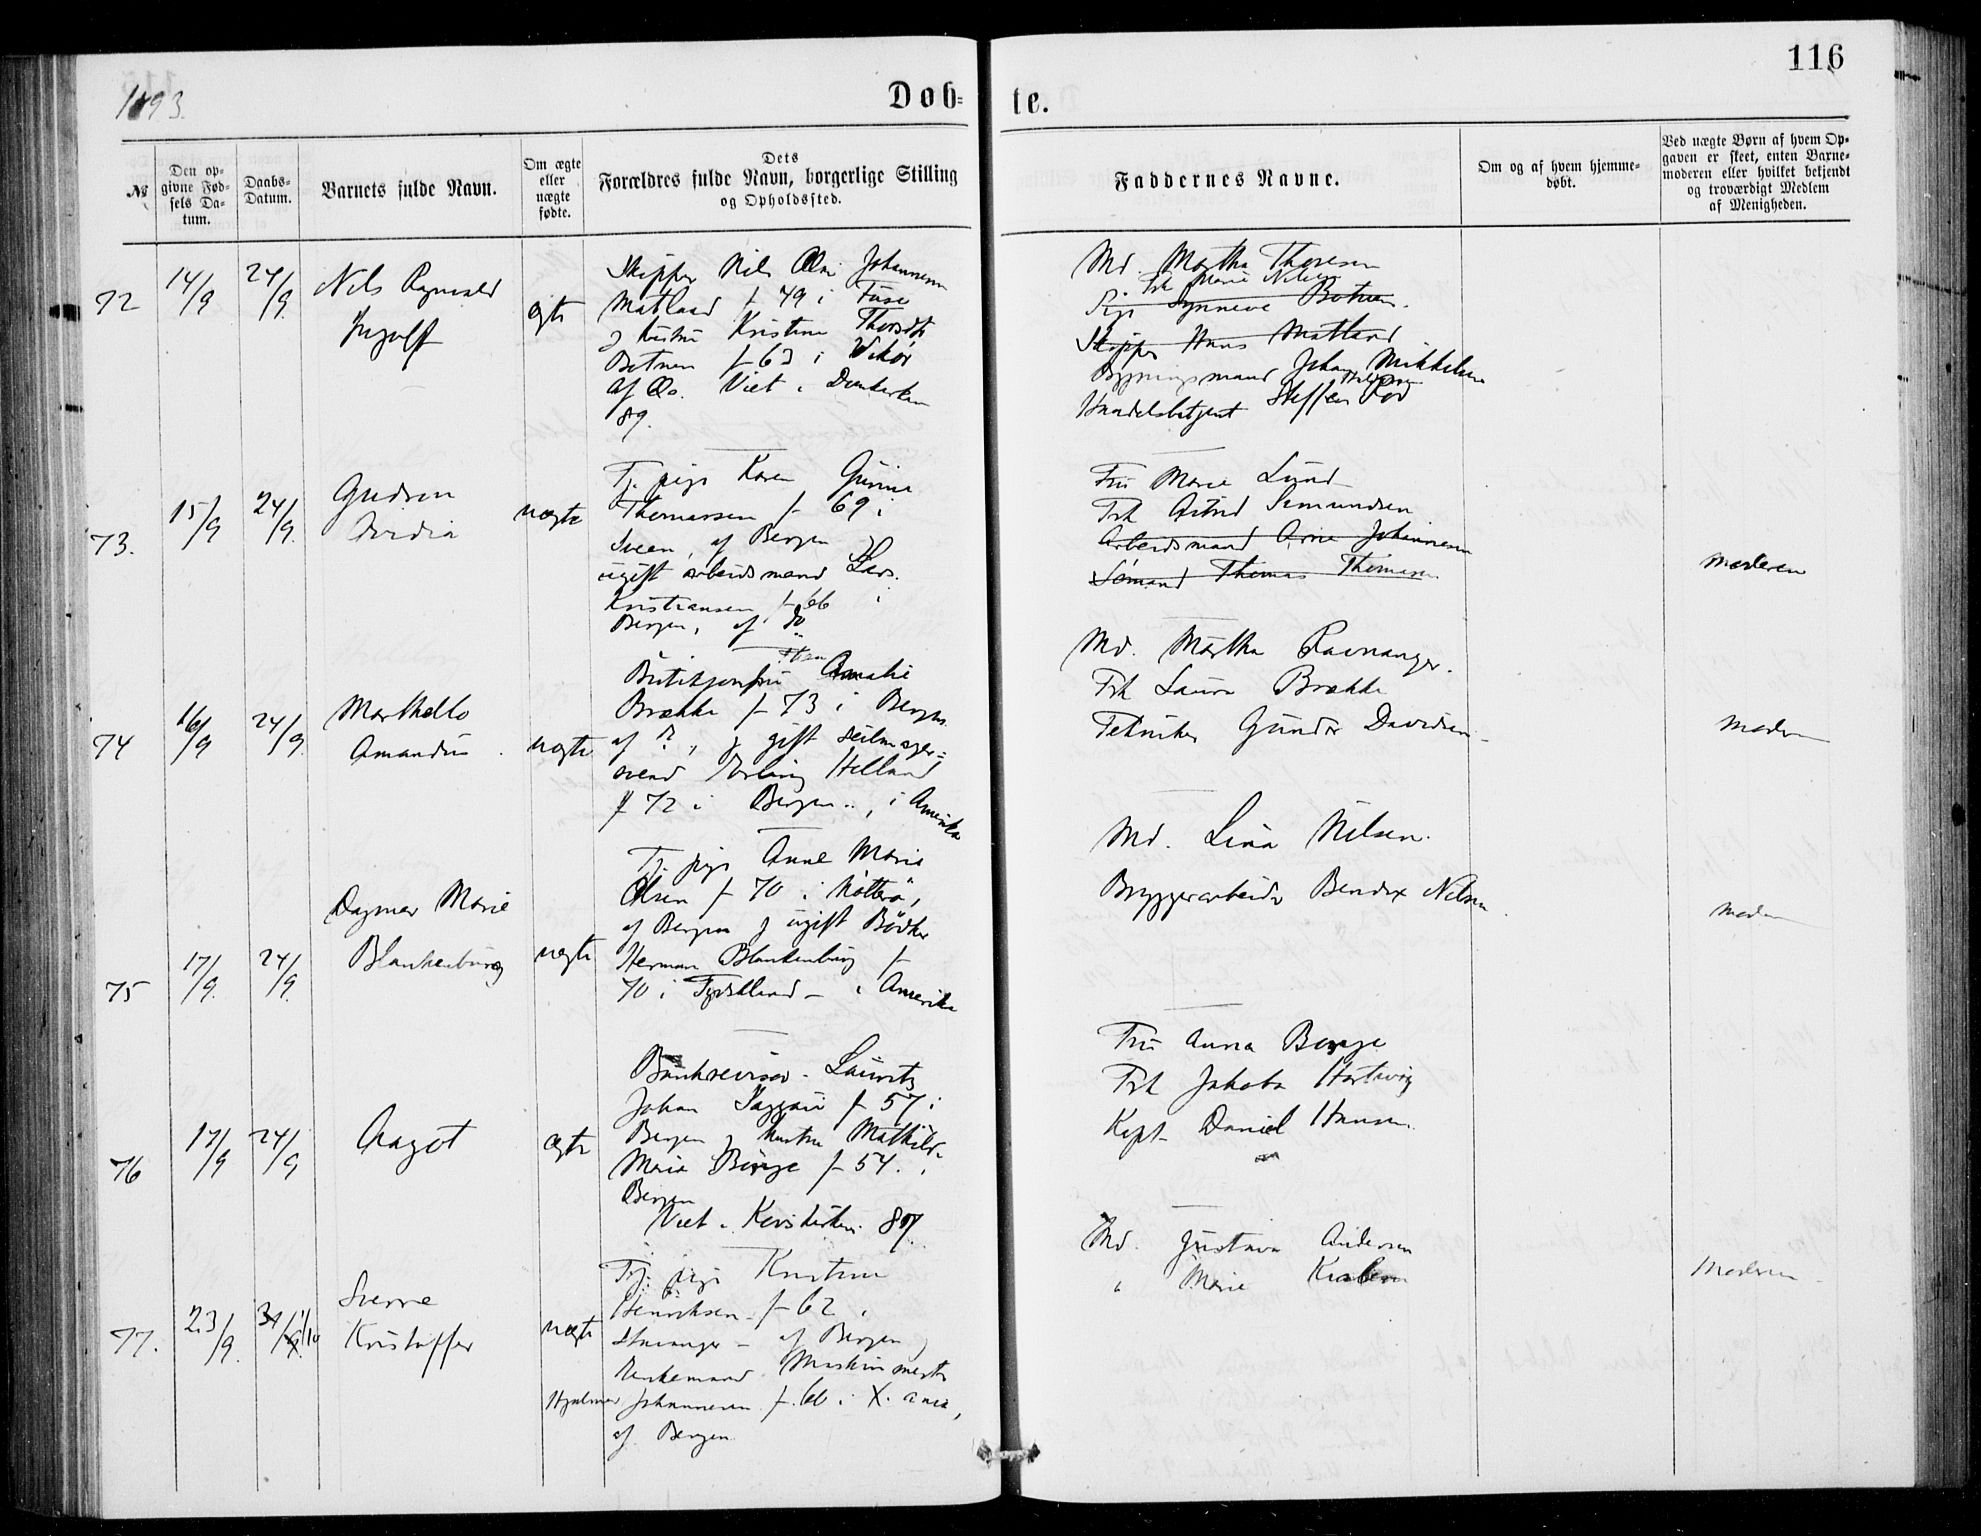 116
1893.
Døb=
te.
№
Den op-
givne Fød-
sels Da-
tum.
Daabs-
Datum.
Barnets fulde Navn.
Om ægte
eller
uægte
fødte.
Dets
Forældres fulde Navn, borgerlige Stilling
og Opholdssted.
Faddernes Navne.
Om og af hvem hjemme-
døbt.
Ved uægte Børn af hvem Op-
gaven er skeet, enten Barne-
moderen eller hvilket bekjendt
og troværdigt Medlem
af Menigheden.
72
14/9
24/9
Nils Ragnvald
Ingolf
Skipper Nils Johannesen
Matland f 49 i Fuse
Kristine
Botnen f 63 i Vikør
Viet i
89.
Md. Martha Thoresen
Frk Marie Nilsen
Pige Synneve Botnen.
Skipper Hans Matland
Bygningsmand Johan Mikkelsen
Handelsbetjent Steffen
73.
15/9
24/9
Gudrun
uægte
Tj. pige Karen
Thomassen f 69 i
Sveen, af Bergen
ugift arbeidsmand Lars
Kristiansen f 66 i
Bergen, af do
Fru Marie Lund
Frk Astrid Simundsen
Arbeidsmand Arne Johannesen
Sømand Thomas Thomasen
Moderen
74
16/9
24/9
Amandus
uægte
Amalie
Brække f 73 i Bergen
af ?, gift seilmager=
svend Erling Helland
f 72 i Bergen, i Amerika
Md. Martha Ravnanger.
Frk Laura Brække
Tekniker Gunder Davidsen
Moderen
75
17/9
24/9
Dagmar Marie
Blankenburg
uægte
Tj. pige Anne Marie
Olsen f 70 i Nøtterø,
af Bergen ugift Bødker
Herman Blankenburg f
70 i Tydskland - i Amerika
Md. Lina Nilsen.
Bryggerarbeider Bendix Nilsen
Moderen
76
17/9
24/9
Aagot
ægte
Bankrevisor Lauritz
Johan f 57 i
Bergen Hustru Mathilde
Maria Børge f 54 i
Bergen
Viet i Korskirken 87
Fru Anna Børge
Frk Jakoba Hartvig
Kapt Daniel Hansen
77.
23/9
1/10
Sverre
Kristoffer
uægte
Tj. pige Kristine
Henriksen f 62 i
Stavanger - af Bergen
Enkemand Maskinmester
Hjalmar Johannesen f. 66 i X.ania,
af Bergen
Md. Gustava Andersen
" Marie
Moderen